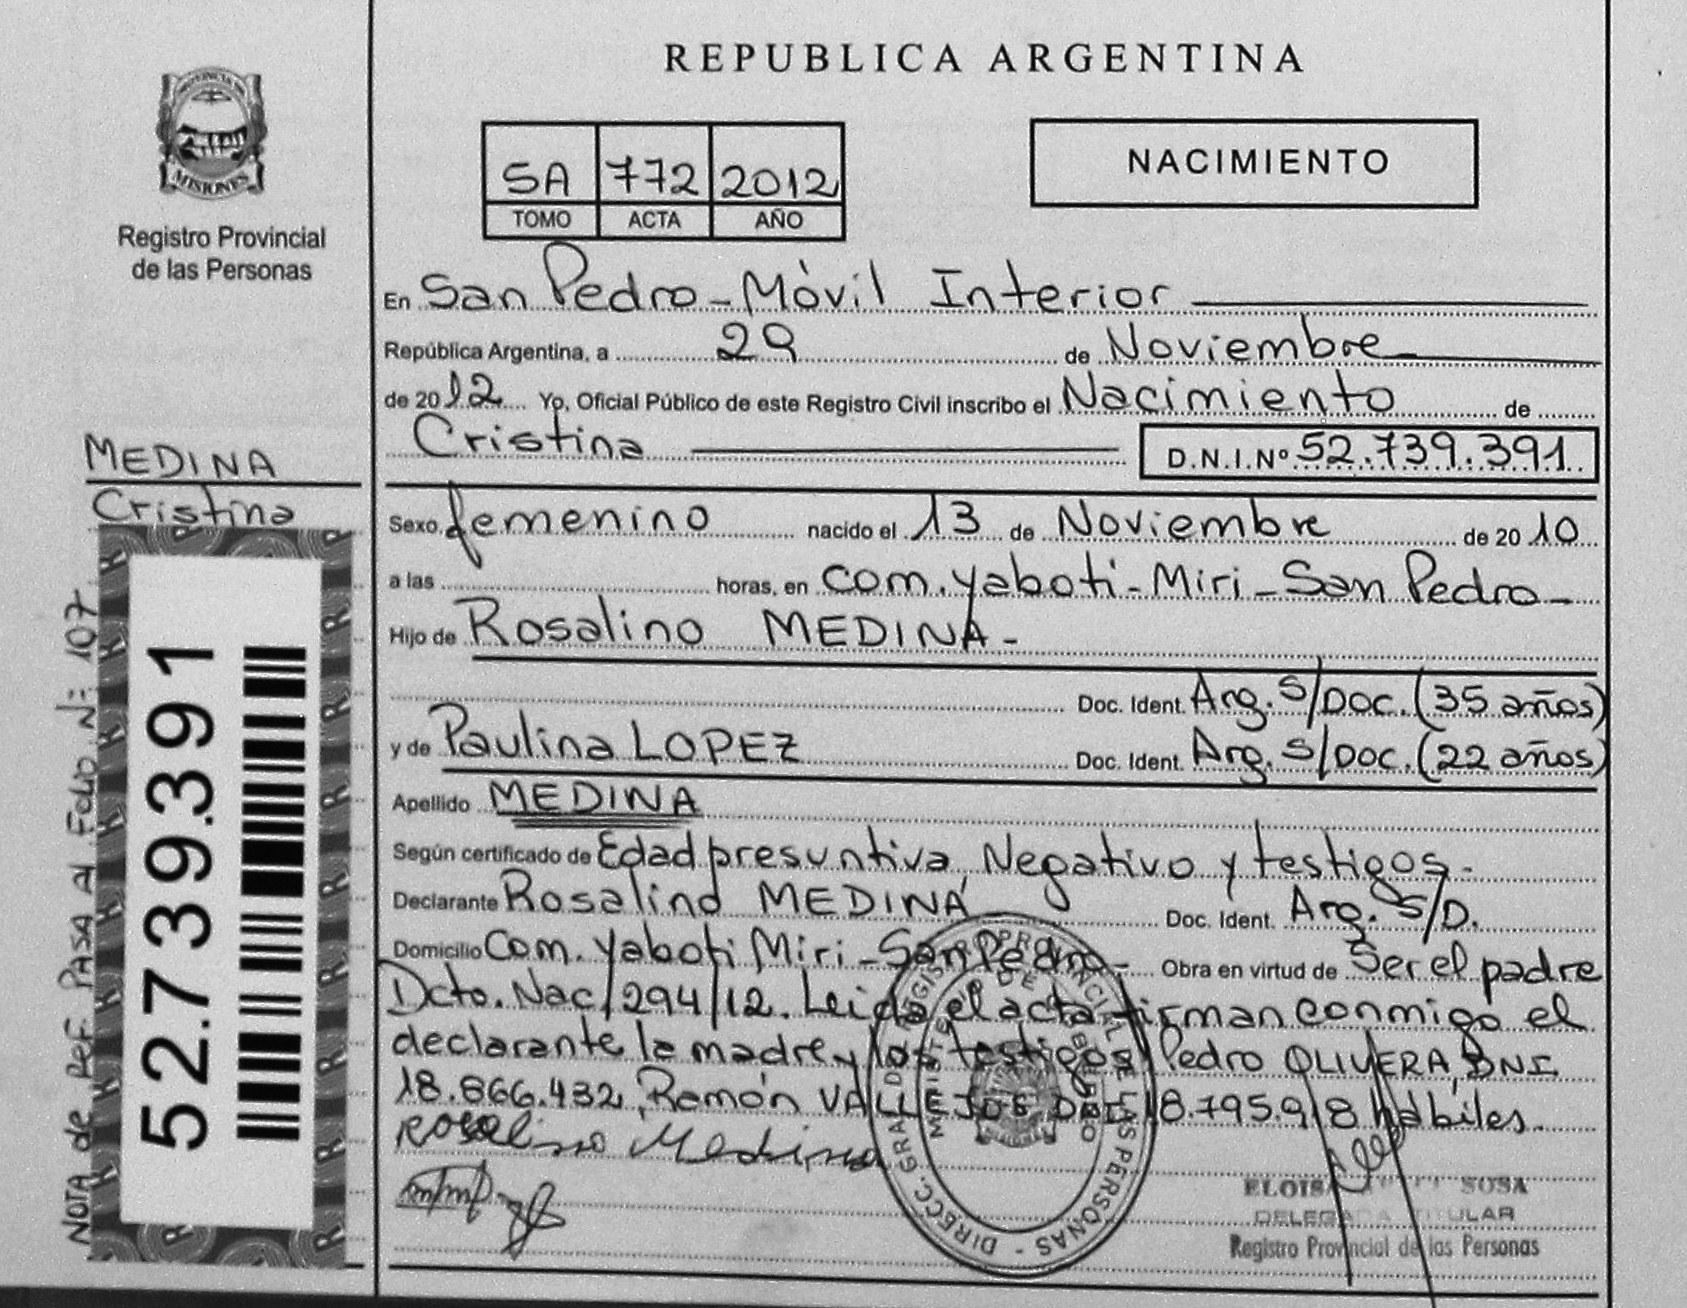 REPUBLICA ARGENTINA
MISIONES
Registro Provincial
de las Personas
5A 772 2012
TOMO ACTA AÑO
NACIMIENTO
En San Pedro - Móvil Interior
República Argentina, a 29 de Noviembre
de 2012 Yo, Oficial Público de este Registro Civil inscribo el Nacimiento de
Cristina D.N.I.Nº 52.739.391
MEDINA
Cristina
Sexo femenino nacido el 13 de Noviembre de 2010
a las horas, en Com. Yaboti - Miri - San Pedro -
Hijo de Rosalino MEDINA -
Doc. Ident. Arg. S/Doc. (35 años)
y de Paulina LOPEZ Doc. Ident. Arg. S/Doc. (22 años)
Apellido MEDINA
Según certificado de Edad presuntiva Negativo y testigos -
Declarante Rosalino MEDINA Doc. Ident. Arg. S/D.
Domicilio Com. Yaboti Miri - San Pedro - Obra en virtud de Ser el padre
Dcto. Nac/294/12. Leida el acta firman conmigo el
declarante la madre y los testigos Pedro OLIVERA, DNI
18.866.432, Ramón VALLEJOS DNI 18.795.918 hábiles.
Rosalino Medina
ELOISA SUSA
DELEGADA TITULAR
Registro Provincial de las Personas
DIRECC. GRAL. DEL REGISTRO PROVINCIAL DE LAS PERSONAS
MINISTERIO DE GOBIERNO
NOTA de REF. PASA Al Folio Nº: 107
52.739.391